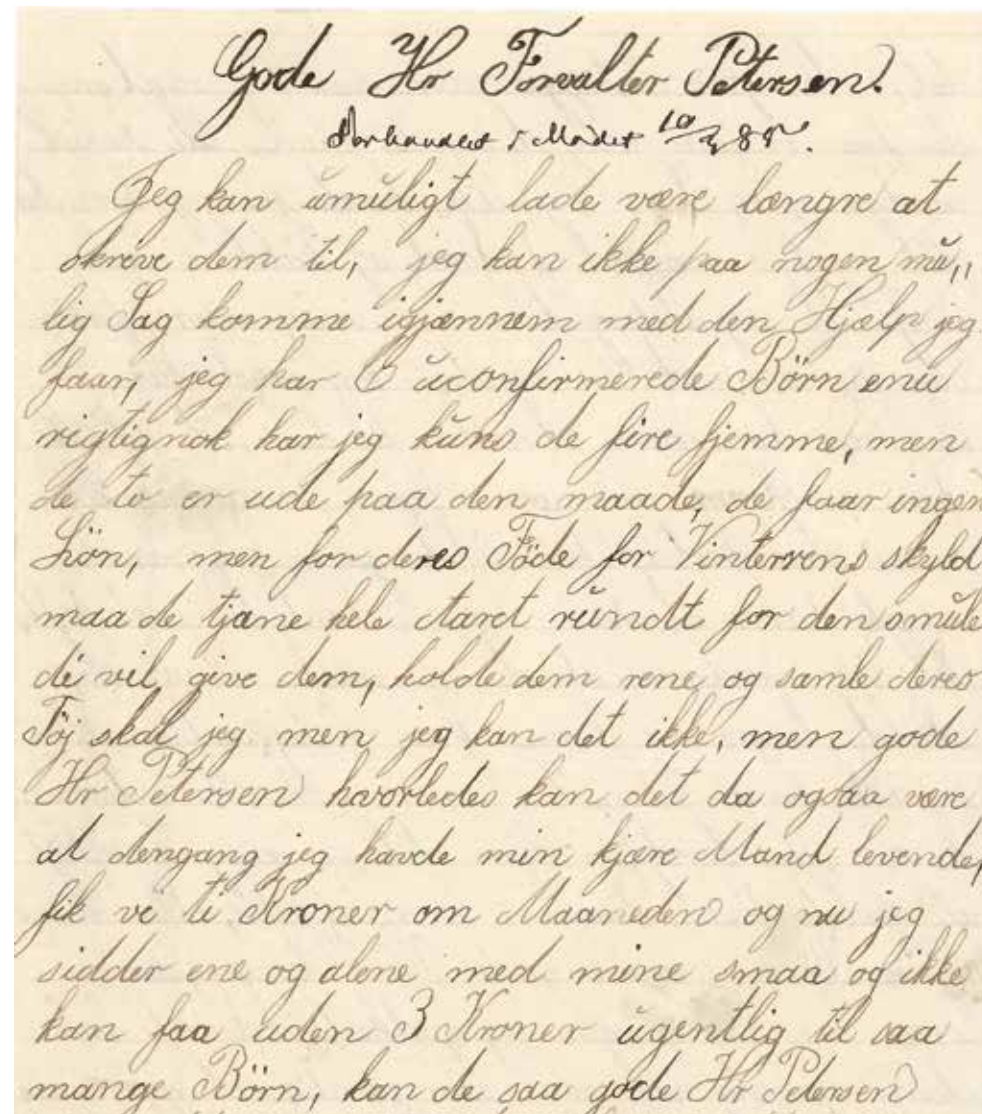 Gode Hr Forvalter Petersen.
Forhandlet i Mødet 10/2 85.
Jeg kan umuligt lade være længre at
skreve dem til, jeg kan ikke paa nogen mu„
lig Sag komme igjænnem med den Hjælp jeg
faar, jeg har 6 uconfirmerede Börn enu
rigtignok har jeg kuns de fire hjemme, men
de to er ude paa den maade, de faar ingen
Lön, men for deres Föde for Vinterens skyld
maa de tjane hele Aaret rundt for den smule
de vil give dem, holde dem rene og samle deres
Töj skal jeg men jeg kan det ikke, men gode
Hr Petersen hvorledes kan det da ogsaa være
at dengang jeg havde min kjære Mand levende,
fik ve ti Kroner om Maaneden og nu jeg
sidder ene og alene med mine smaa og ikke
kan faa uden 3 Kroner ugentlig til saa
mange Börn, kan de saa gode Hr Petersen